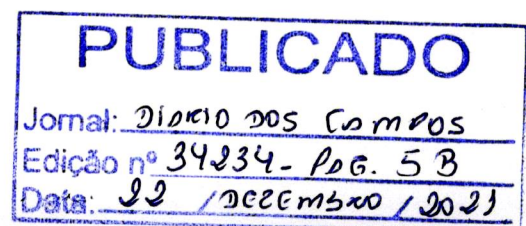 PUBLICADO
Jornal: DIARIO DOS CAMPOS
Edição nº 34234- PAG. 5B
Data: 22 / DEZEMBRO / 2021